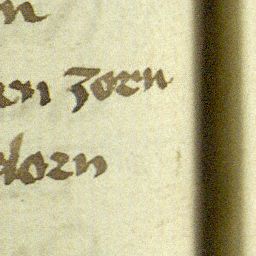 n
rn zorn
lorn